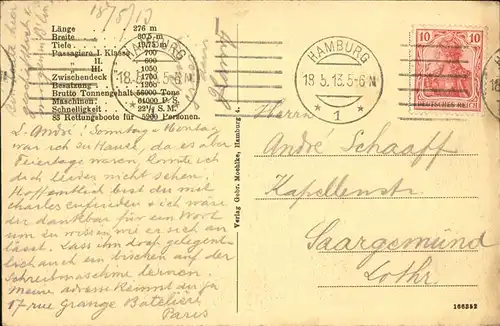 18/5/13
Länge 276 m
Breite 30,5 m
Tiefe 19,75 m
Passagiere I. Klasse 700
" II. " 600
" III. " 1050
Zwischendeck 1700
Besatzung 1200
Brutto Tonnengehalt 50000 Tons
Maschinen 61000 P. S.
Schnelligkeit 22½ S. M.
83 Rettungsboote für 5900 Personen.
HAMBURG
18.5.13.5-6N
HAMBURG
18.5.13.5-6N
* 1 *
10 10
DEUTSCHES REICH
L. André! Sonntag + Montag
war ich zu Hause, da es aber
Feiertage waren, konnte ich
dich leider nicht sehen.
Hoffentlich bist du mit
Charles zufrieden + ich wäre
dir dankbar für ein Wort
um zu wissen wie er sich an
lässt. Lass ihn doch gelegent
lich auch ein bischen auf der
Schreibmaschine lernen.
Meine Adresse kennst du ja
17 rue Grange Batelière
Paris
Verlag Gebr. Mochlke, Hamburg 4.
Herrn
André Schaaff
Kapellenstr.
Saargemünd
Lothr.
166352